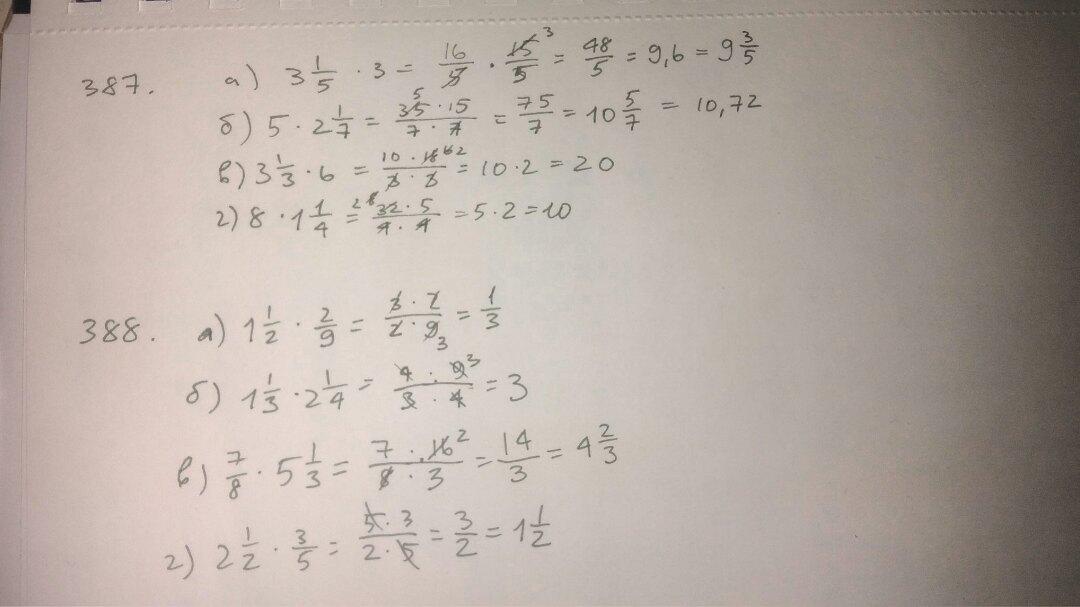 387. а) 3 1/5 · 3 = 16/5 · 15 3/5 = 48/5 = 9,6 = 9 3/5
б) 5 · 2 1/7 = 35 5 · 15/7 · 7 = 75/7 = 10 5/7 = 10,72
в) 3 1/3 · 6 = 10 · 18 6 2/3 · 3 = 10 · 2 = 20
г) 8 · 1 1/4 = 2 8 32 · 5/4 · 4 = 5 · 2 = 10
388. а) 1 1/2 · 2/9 = 3 · 2/2 · 9 3 = 1/3
б) 1 1/3 · 2 1/4 = 4 · 9 3/3 · 4 = 3
в) 7/8 · 5 1/3 = 7 · 16 2/8 · 3 = 14/3 = 4 2/3
г) 2 1/2 · 3/5 = 5 · 3/2 · 5 = 3/2 = 1 1/2